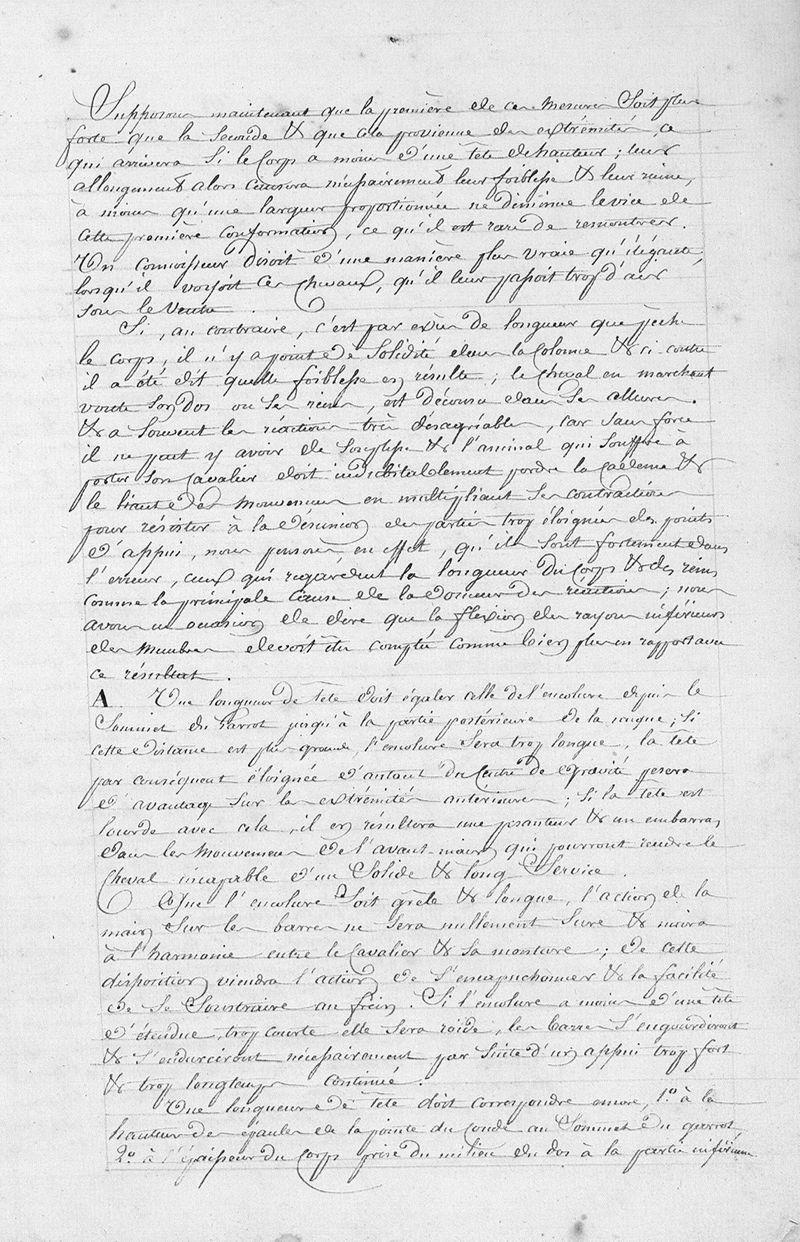 Supposons maintenant que la première de ces mesures soit plus
forte que la seconde & que cela provienne des extrémités, ce
qui arrivera si le Corps a moins d'une tête de hauteur ; leur
allongement alors causera nécessairement leur foiblesse & leur ruine,
à moins qu'une largeur proportionnée ne diminue le vice de
cette première conformation, ce qu'il est rare de rencontrer.
Un connoisseur disoit d'une manière plus vraie qu'élégante,
lorsqu'il voyoit ces chevaux, qu'il leur passoit trop d'air
sous le ventre.
Si, au contraire, c'est par excès de longueur que pèche
le corps, il n'y a point de solidité dans la colonne & ci contre
il a été dit quelle foiblesse en résulte ; le cheval en marchant
voute son dos ou ses reins, est décousu dans ses allures.
& a souvent les réactions très désagréables, car sans force
il ne peut y avoir de souplesse & l'animal qui souffre à
porter son Cavalier doit indubitablement perdre la cadence &
le liant des mouvemens en multipliant ses contractions
pour résister à la désunion des parties trop éloignées des points
d'appui, nous pensons en effet, qu'ils sont fortement dans
l'erreur, ceux qui regardent la longueur du Corps & des reins
comme la principale cause de la douceur des réactions ; nous
avons eu occasion de dire que la flexion des rayons inférieurs
des membres devoit être comptée comme bien plus en rapport avec
ce résultat.
A Une longueur de tête doit égaler celle de l'encolure depuis le
sommet du garrot jusqu'à la partie postérieure de la nuque ; si
cette distance est plus grande, l'encolure sera trop longue, la tête
par conséquent éloignée d'autant du Centre de gravité pesera
d'avantage sur les extrémités antérieures ; si la tête est
lourde avec cela, il en résultera une pesanteur & un embarras
dans les mouvemens de l'avant-main qui pourront rendre le
Cheval incapable d'un solide & long service.
Que l'encolure soit grêle & longue, l'action de la
main sur les barres ne sera nullement sure & nuira
à l'harmonie entre le Cavalier & sa monture ; de cette
disposition viendra l'action de s'encapuchonner & la facilité
de se soustraire au frein. Si l'encolure a moins d'une tête
d'étendue, trop courte elle sera roide, les barres s'engourdiront
& s'endurciront nécessairement par suite d'un appui trop fort
& trop longtemps continué.
Une longueur de tête doit correspondre encore, 1.° à la
hauteur des épaules de la pointe du coude au sommet du garrot,
2.° à l'épaisseur du Corps prise du milieu du dos à la partie inférieure